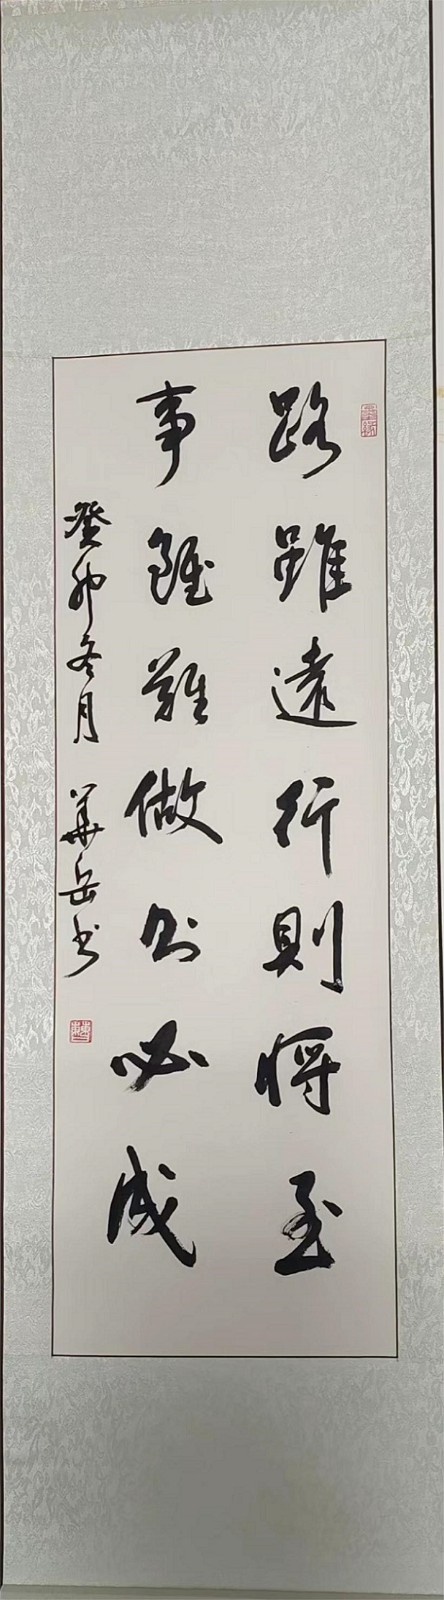 路雖遠行則將至
事雖難做则必成
癸卯冬月 華岳书